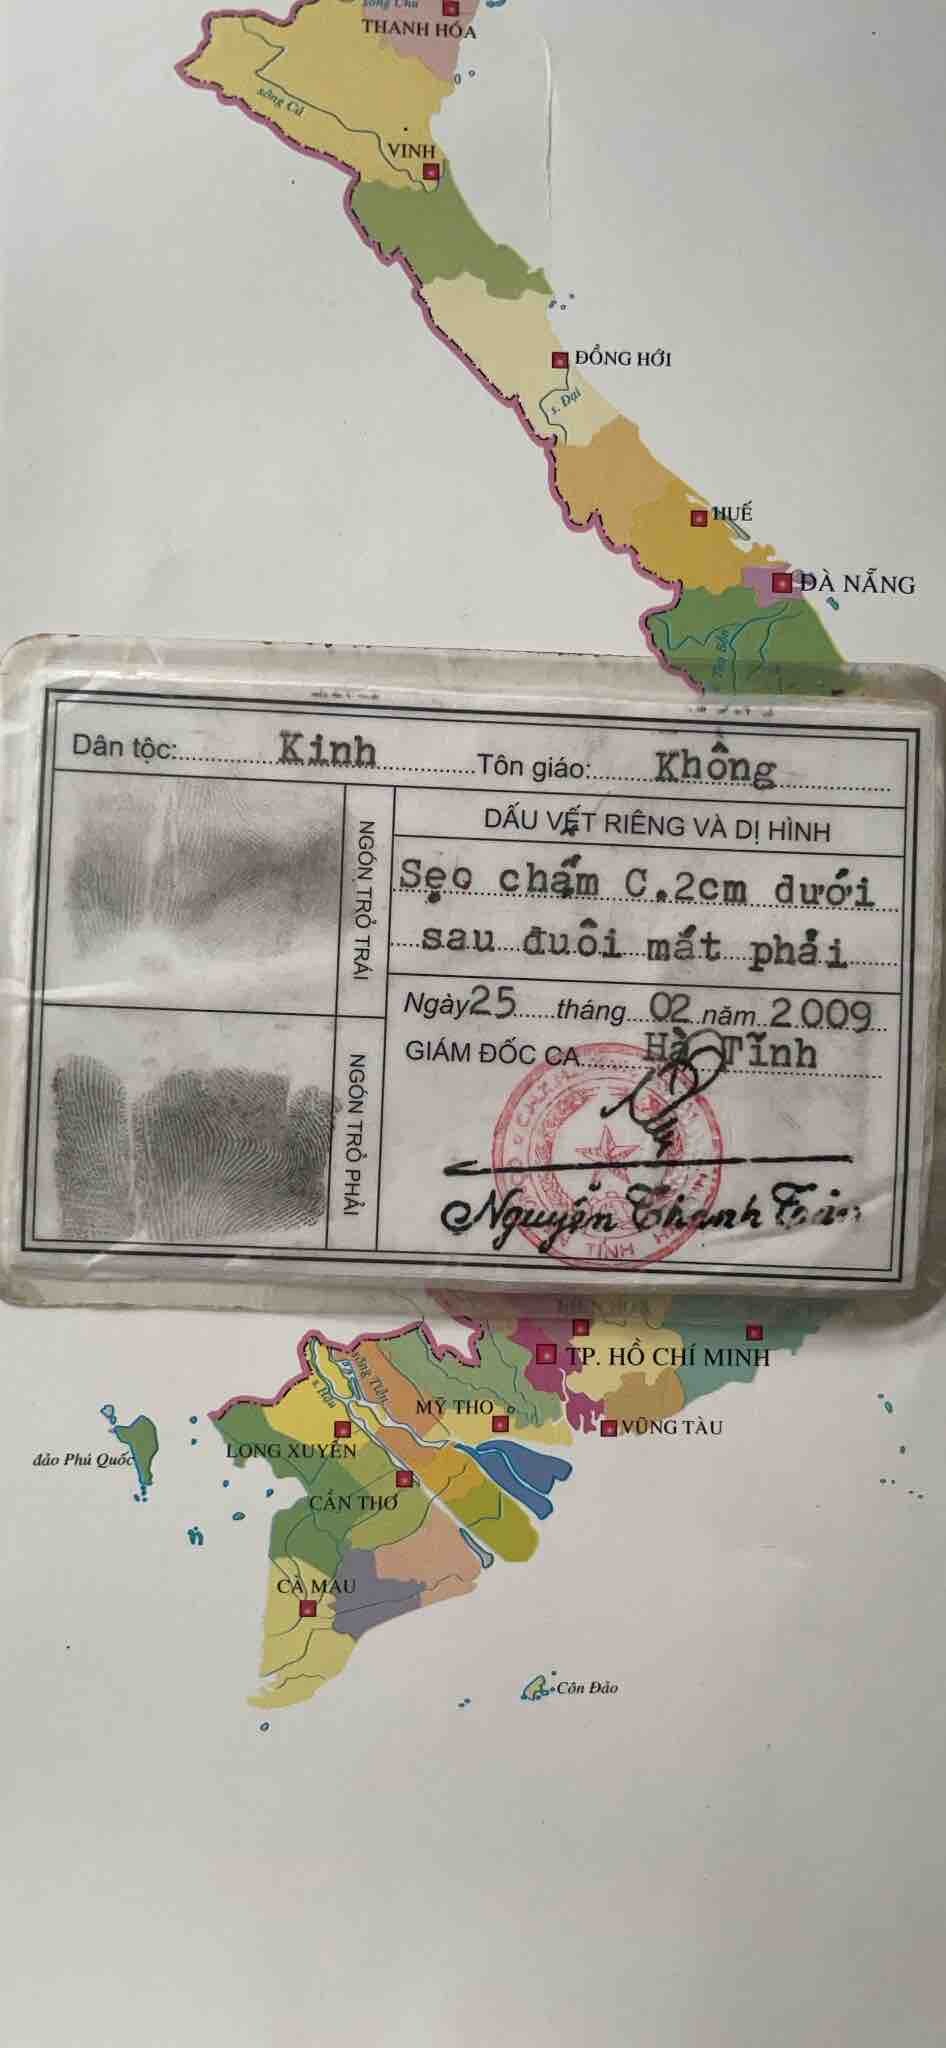 sông Chu
THANH HÓA
sông Cả
VINH
ĐỒNG HỚI
s. Đại
HUẾ
ĐÀ NẴNG
Dân tộc: Kinh Tôn giáo: Không
NGÓN TRỎ TRÁI
DẤU VẾT RIÊNG VÀ DỊ HÌNH
Sẹo chấm C.2cm dưới
sau đuôi mắt phải
NGÓN TRỎ PHẢI
Ngày 25 tháng 02 năm 2009
GIÁM ĐỐC CA Hà Tĩnh
Nguyễn Thanh
TỈNH
TP. HỒ CHÍ MINH
sông Tiền
s. Hậu
MỸ THO
VŨNG TÀU
LONG XUYÊN
đảo Phú Quốc
CẦN THƠ
CÀ MAU
Côn Đảo